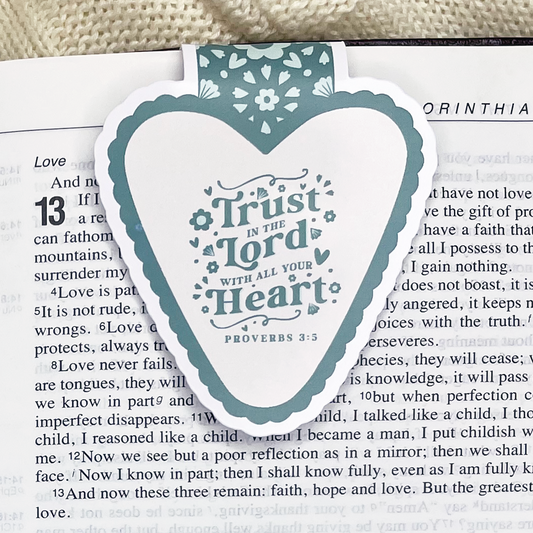 ORINTHIA
Trust
IN THE
Lord
WITH ALL YOUR
Heart
PROVERBS 3:5
Love
13
And no t have not love
If I ve the gift of pro
a re have a faith that
can fathom e all I possess to th
mountains, I gain nothing.
surrender my
4Love is pat does not boast, it is
5It is not rude, i ly angered, it keeps n
wrongs. 6Love d oices with the truth.
protects, always tr erseveres.
8Love never fails. phecies, they will cease; w
are tongues, they will is knowledge, it will pass
we know in part g and rt, 10but when perfection c
imperfect disappears. 11W ild, I talked like a child, I tho
child, I reasoned like a child. When I became a man, I put childish w
me. 12Now we see but a poor reflection as in a mirror; then we shall
face. Now I know in part; then I shall know fully, even as I am fully k
13And now these three remain: faith, hope and love. But the greatest
love.